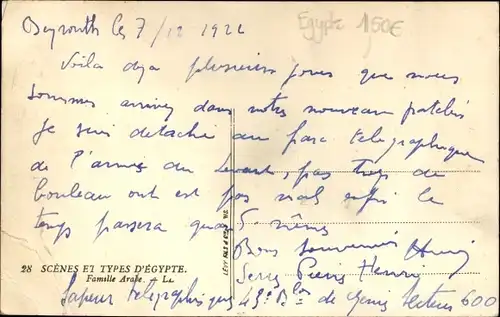 Beyrouth les 7/12 1922
Egypte 150€
Voila deja plusieurs jours que nous
sommes arrivés dans notre nouveau
Je suis detaché au parc telegraphique
de l'armée du Levant, pas trop de
bouleau ont est pas mal enfin le
temps passera quand même
Bons souvenirs Henri
28 SCÈNES ET TYPES D'ÉGYPTE.
Famille Arabe. - LL.
Serre Pierre Henri
Sapeur telegraphique 43e Blon de Genie Secteur 600